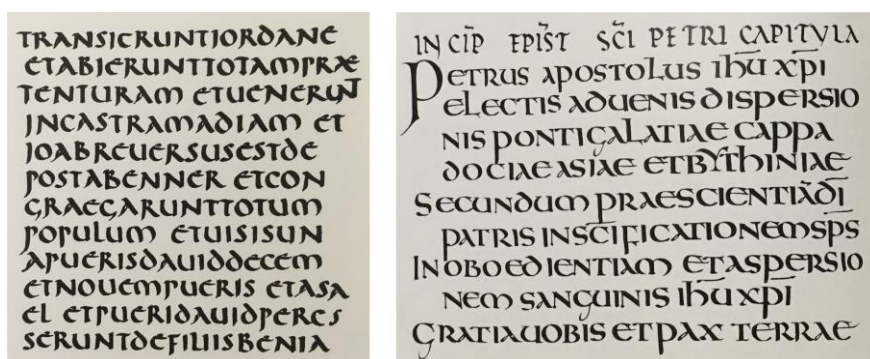 TRANSIERUNTIORDANE
ETABIERUNTTOTAMPRAE
TENTURAM ETUENERUNT
INCASTRAMADIAM ET
IOABREUERSUSESTDE
POSTABENNER ETCON
GRAEGARUNTTOTUM
POPULUM ETUISISUN
APUERISDAUIDDECEM
ETNOUEMPUERIS ETASA
EL ETPUERIDAUIDPERCS
SERUNTDEFILIISBENIA
IN CIP̄ EPIS̄T SC̄I PETRI CAPITVLA
PETRUS APOSTOLUS IHŪ XP̄I
ELECTIS ADUENIS DISPERSIO
NIS PONTI GALATIAE CAPPA
DOCIAE ASIAE ETBYTHINIAE
SECUNDUM PRAESCIENTIĀDĪ
PATRIS INSCIFICATIONEMSPS
IN OBOEDIENTIAM ETASPERSIO
NEM SANGUINIS IHŪXP̄I
GRATIAUOBIS ETPAX TERRAE